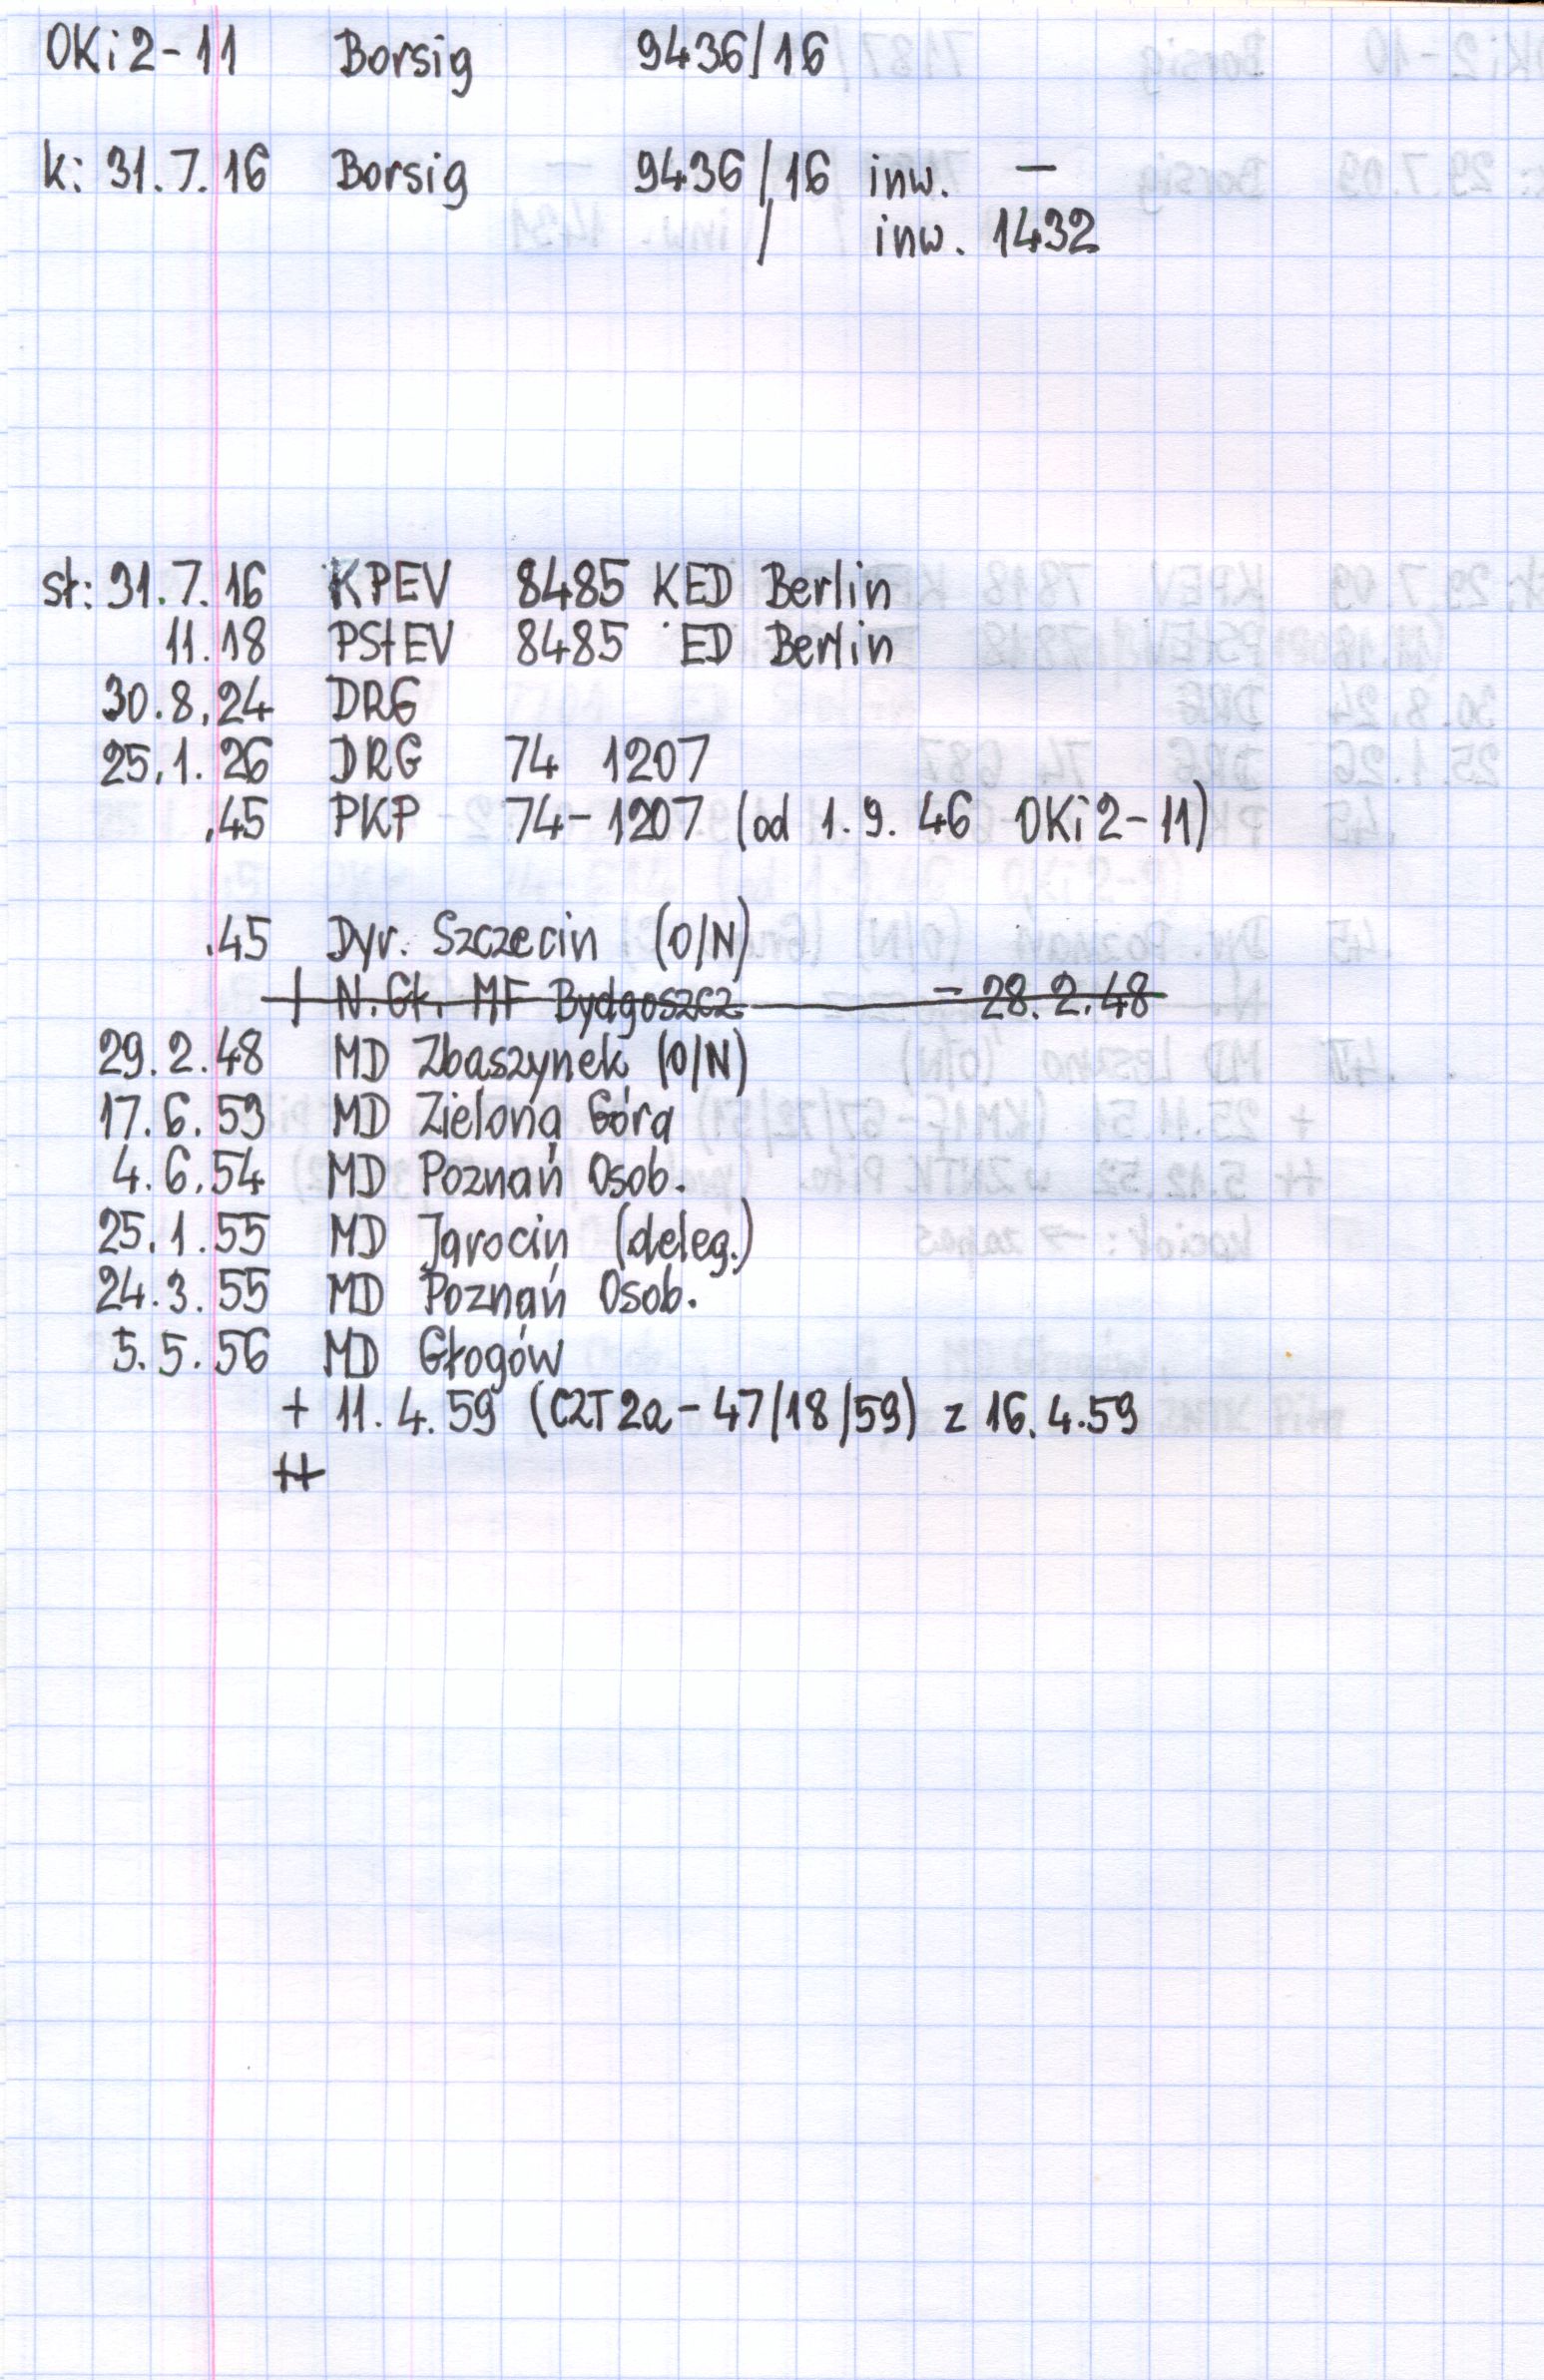 OKi2-11 Borsig 9436/16
k: 31.7.16 Borsig 9436/16 inw. —
/ inw. 1432
st: 31.7.16 KPEV 8485 KED Berlin
11.18 PStEV 8485 ED Berlin
30.8.24 DRG
25.1.26 DRG 74 1207
.45 PKP 74-1207 (od 1.9.46 OKi2-11)
.45 Dyr. Szczecin (O/N)
N.Gł. MF Bydgoszcz - 28.2.48
29.2.48 MD Zbaszynek (O/N)
17.6.53 MD Zielona Góra
4.6.54 MD Poznań Osob.
25.1.55 MD Jarocin (deleg.)
24.3.55 MD Poznań Osob.
5.5.56 MD Głogów
+ 11.4.59 (CZT2a-47/18/59) z 16.4.59
++